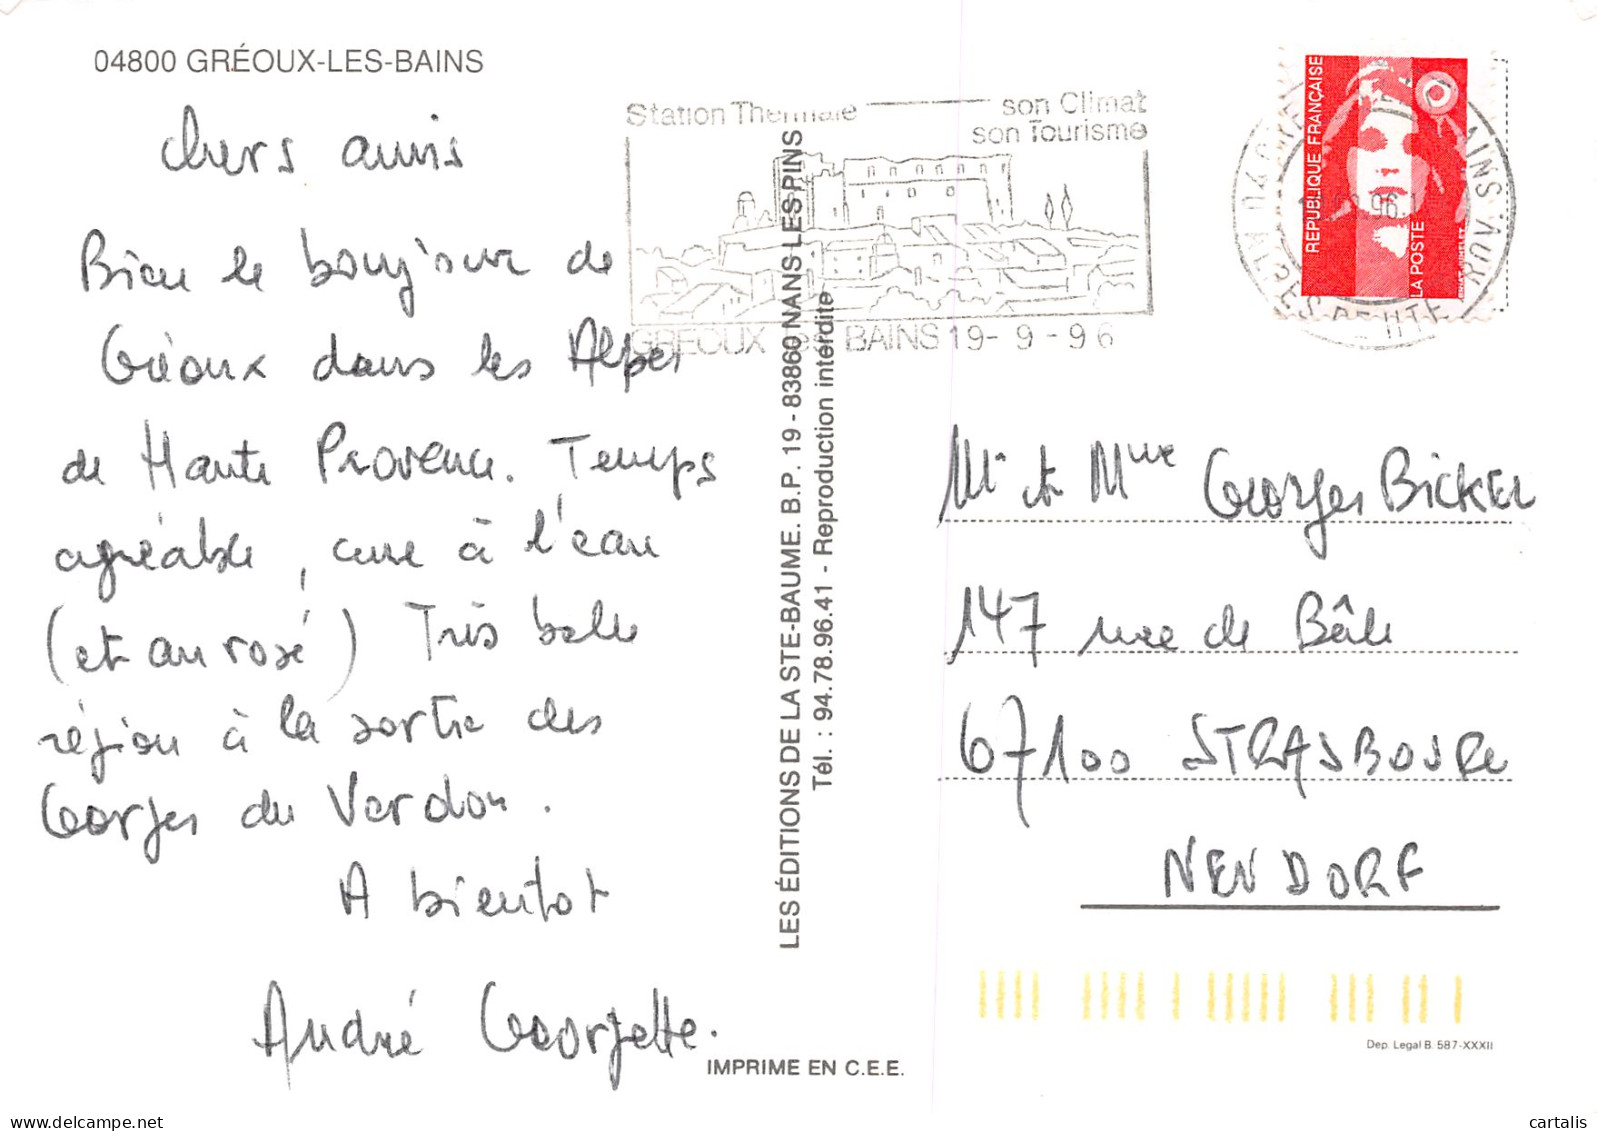 04800 GRÉOUX-LES-BAINS
Chers amis
Bien le bonjour de
Gréoux dans les Alpes
de Haute Provence. Temps
agréable, cure à l'eau
(et au rosé) Très belle
région à la sortie des
Gorges du Verdon.
A bientot
André Georgette.
Station Thermale
son Climat
son Tourisme
GREOUX les BAINS 19-9-96
LES ÉDITIONS DE LA STE-BAUME. B.P. 19 - 83860 NANS-LES-PINS
Tél. : 94.78.96.41 - Reproduction interdite
IMPRIME EN C.E.E.
REPUBLIQUE FRANÇAISE
LA POSTE
96
Mr et Mme Georges BICKEL
147 rue de Bâle
67100 STRASBOURG
NEUDORF
Dep. Legal B. 587-XXXII
cartalis